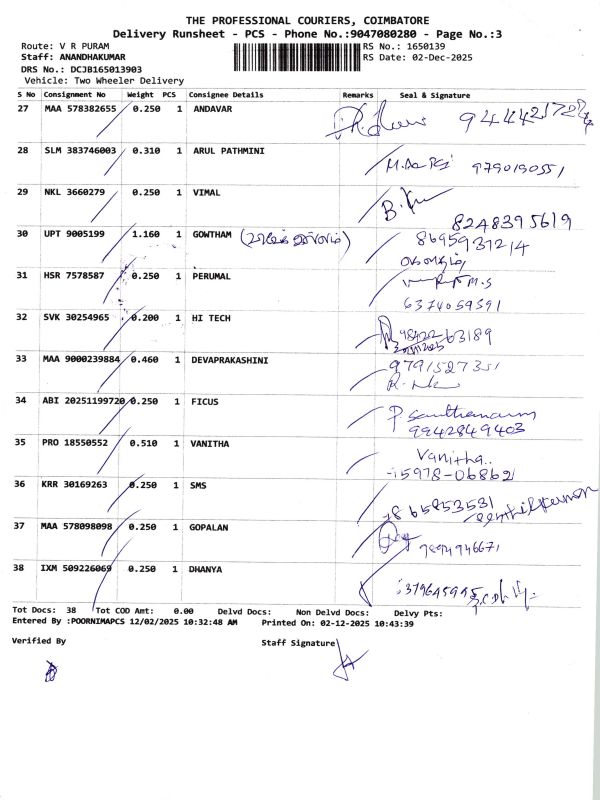 THE PROFESSIONAL COURIERS, COIMBATORE
Delivery Runsheet - PCS - Phone No.:9047080280 - Page No.:3
Route: V R PURAM RS No.: 1650139
Staff: ANANDHAKUMAR RS Date: 02-Dec-2025
DRS No.: DCJB165013903
Vehicle: Two Wheeler Delivery
S No Consignment No Weight PCS Consignee Details Remarks Seal & Signature
27 MAA 578382655 0.250 1 ANDAVAR
28 SLM 383746003 0.310 1 ARUL PATHMINI 9790190551
29 NKL 3660279 0.250 1 VIMAL
8248395619
30 UPT 9005199 1.160 1 GOWTHAM 8695931214
31 HSR 7578587 0.250 1 PERUMAL
6374059591
32 SVK 30254965 0.200 1 HI TECH
33 MAA 9000239884 0.460 1 DEVAPRAKASHINI 9791527351
34 ABI 20251199720 0.250 1 FICUS
9942849403
35 PRO 18550552 0.510 1 VANITHA Vanitha..
15978-06862
36 KRR 30169263 0.250 1 SMS
8865853531
37 MAA 578098098 0.250 1 GOPALAN
7894946671
38 IXM 509226069 0.250 1 DHANYA
Tot Docs: 38 Tot COD Amt: 0.00 Delvd Docs: Non Delvd Docs: Delvy Pts:
Entered By :POORNIMAPCS 12/02/2025 10:32:48 AM Printed On: 02-12-2025 10:43:39
Verified By Staff Signature